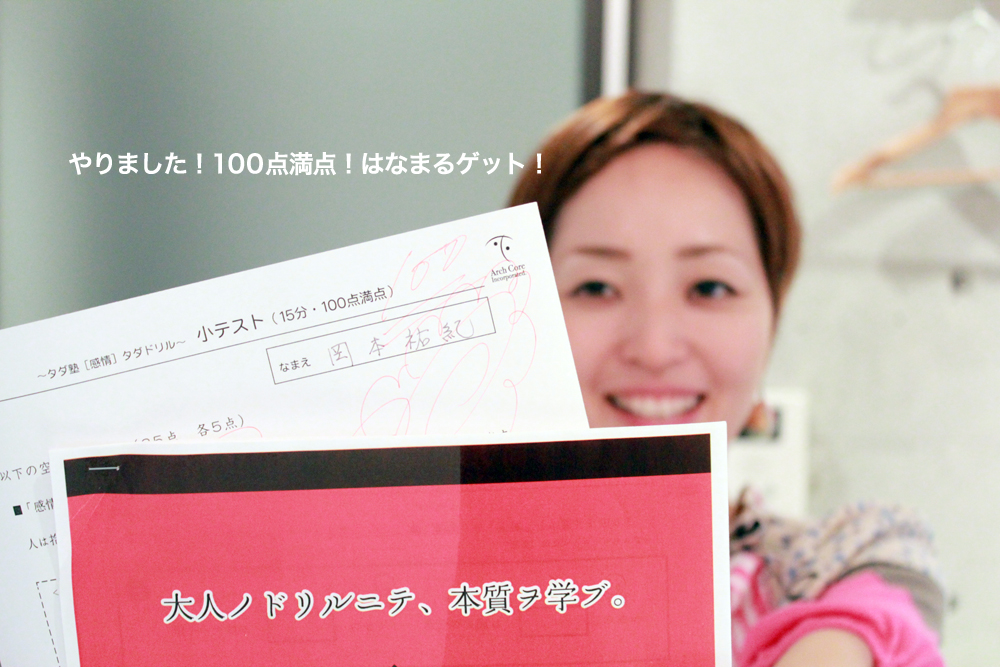 やりました！100点満点！はなまるゲット！
Arch Core
Incorporated
～タダ塾［感情］タダドリル～ 小テスト（15分・100点満点）
なまえ 岡本祐紀
各5点）
以下の空
■「感情
人は
大人ノドリルニテ、本質ヲ学ブ。